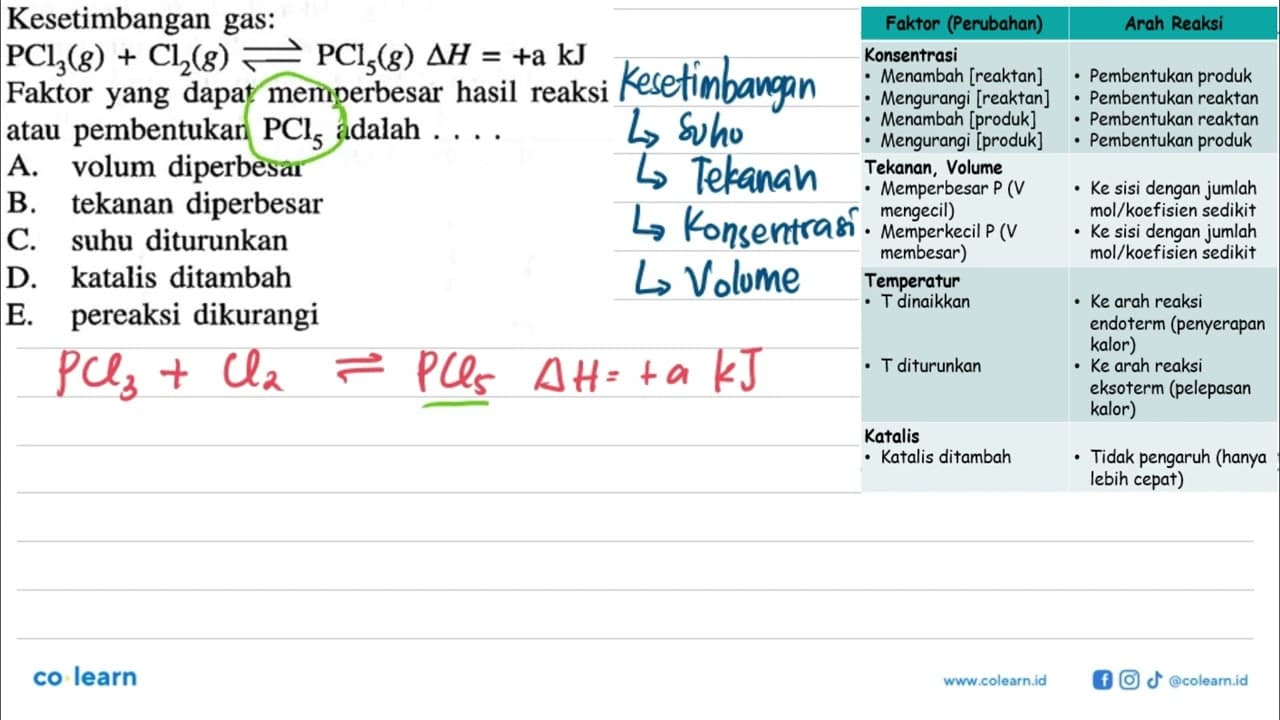 Kesetimbangan gas:
PCl₃(g) + Cl₂(g) ⇌ PCl₅(g) ΔH = +a kJ
Faktor yang dapat memperbesar hasil reaksi
atau pembentukan PCl₅ adalah . . . .
A. volum diperbesar
B. tekanan diperbesar
C. suhu diturunkan
D. katalis ditambah
E. pereaksi dikurangi
Kesetimbangan
↳ Suhu
↳ Tekanan
↳ Konsentrasi
↳ Volume
PCl₃ + Cl₂ ⇌ PCl₅ ΔH = +a kJ
Faktor (Perubahan) Arah Reaksi
Konsentrasi
• Menambah [reaktan] • Pembentukan produk
• Mengurangi [reaktan] • Pembentukan reaktan
• Menambah [produk] • Pembentukan reaktan
• Mengurangi [produk] • Pembentukan produk
Tekanan, Volume
• Memperbesar P (V • Ke sisi dengan jumlah
mengecil) mol/koefisien sedikit
• Memperkecil P (V • Ke sisi dengan jumlah
membesar) mol/koefisien sedikit
Temperatur
• T dinaikkan • Ke arah reaksi
endoterm (penyerapan
kalor)
• T diturunkan • Ke arah reaksi
eksoterm (pelepasan
kalor)
Katalis
• Katalis ditambah • Tidak pengaruh (hanya
lebih cepat)
co learn
www.colearn.id @colearn.id